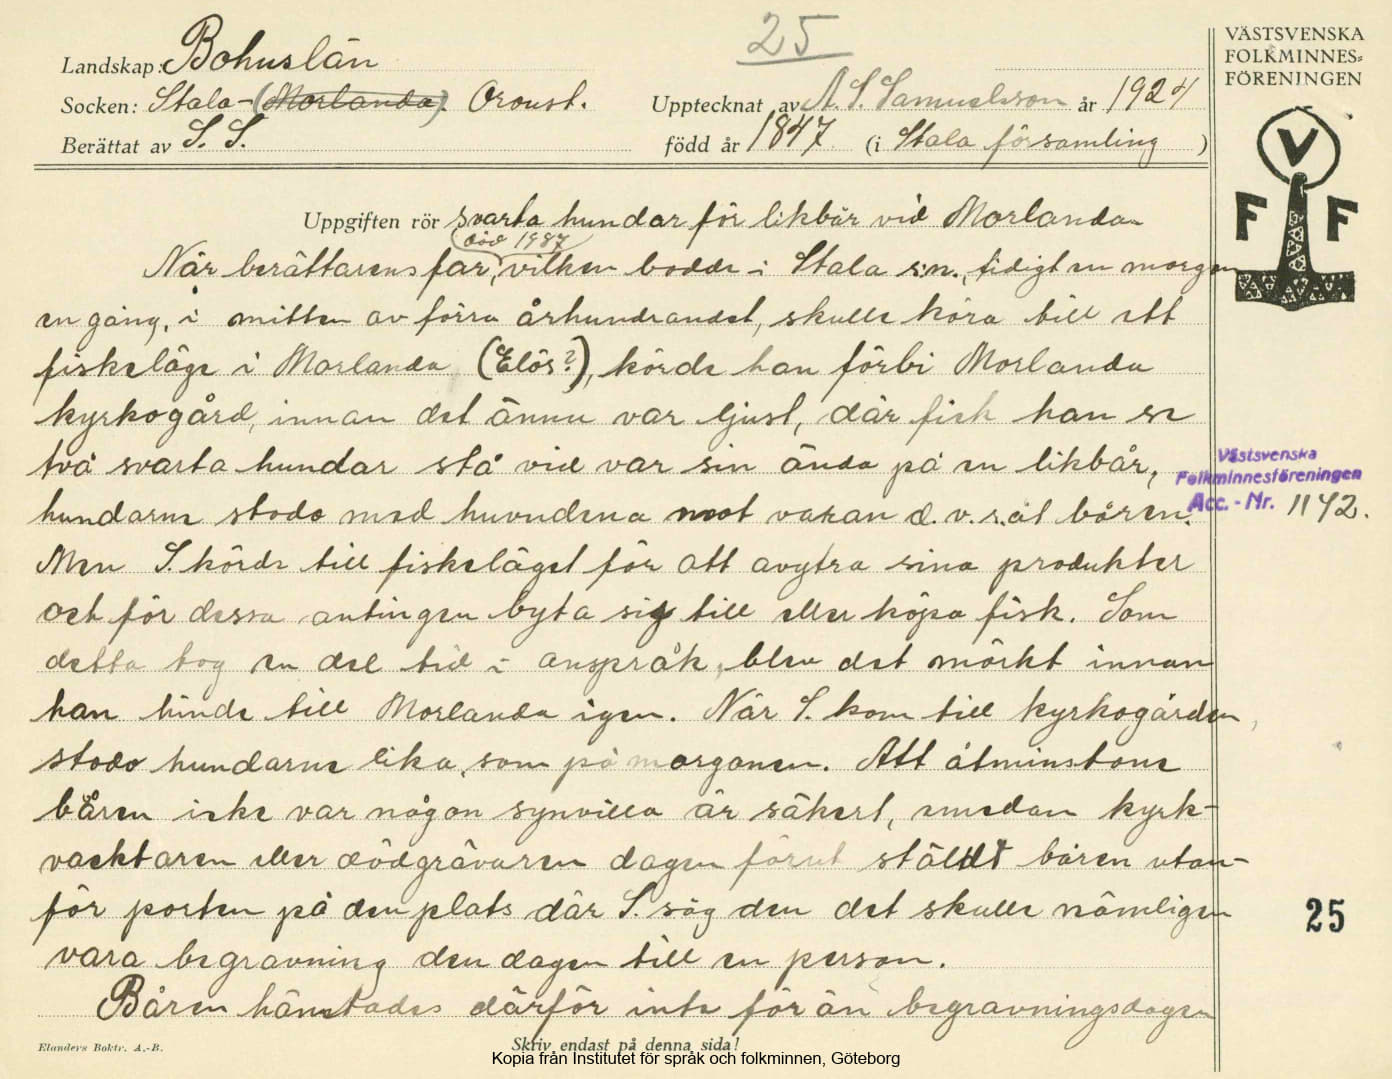 25
VÄSTSVENSKA
FOLKMINNES=
FÖRENINGEN
Landskap: Bohuslän
Socken: Stala - (Morlanda). Oroust.
Upptecknat av A. S. Samuelsson år 1924
Berättat av S. S.
född år 1847 (i Stala församling )
V
F F
Uppgiften rör svarta hundar för likbår vid Morlanda
död 1887
När berättarens far, vilken bodde i Stala s:n., tidigt en morgon
en gång, i mitten av förra århundrandet, skulle köra till ett
fiskeläge i Morlanda (Elös?), körde han förbi Morlanda
kyrkogård, innan det ännu var ljust, där fick han se
två svarta hundar stå vid var sin ända på en likbår,
hundarne stodo med huvudena mot varan d.v.s. åt båren.
Västsvenska
Folkminnesföreningen
Acc. - Nr. 1142.
Men S. körde till fiskeläget för att avytra sina produkter
oct för dessa antingen byta sig till eller köpa fisk. Som
detta tog en del tid i anspråk, blev det mörkt innan
han hinde till Morlanda igen. När S. kom till kyrkogården,
stodo hundarne lika, som på morgonen. Att åtminstone
båren icke var någon synvilla är säkert, emedan kyrk-
vacktaren eller dödgrävaren dagen förut ställdt båren utan-
för porten på den plats där S. såg den det skulle nämligen
25
vara begravning den dagen till en person.
Båren hämtades därför inte för än begravningsdagen
Elanders Boktr. A.-B.
Skriv endast på denna sida!
Kopia från Institutet för språk och folkminnen, Göteborg